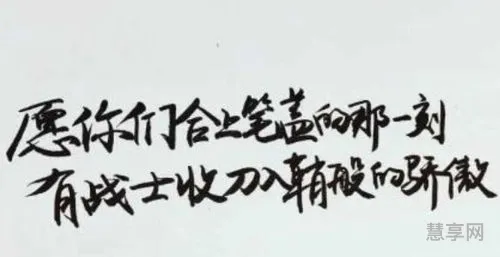 愿你们合上笔盖的那一刻
有战士收刀入鞘般的骄傲
慧享网